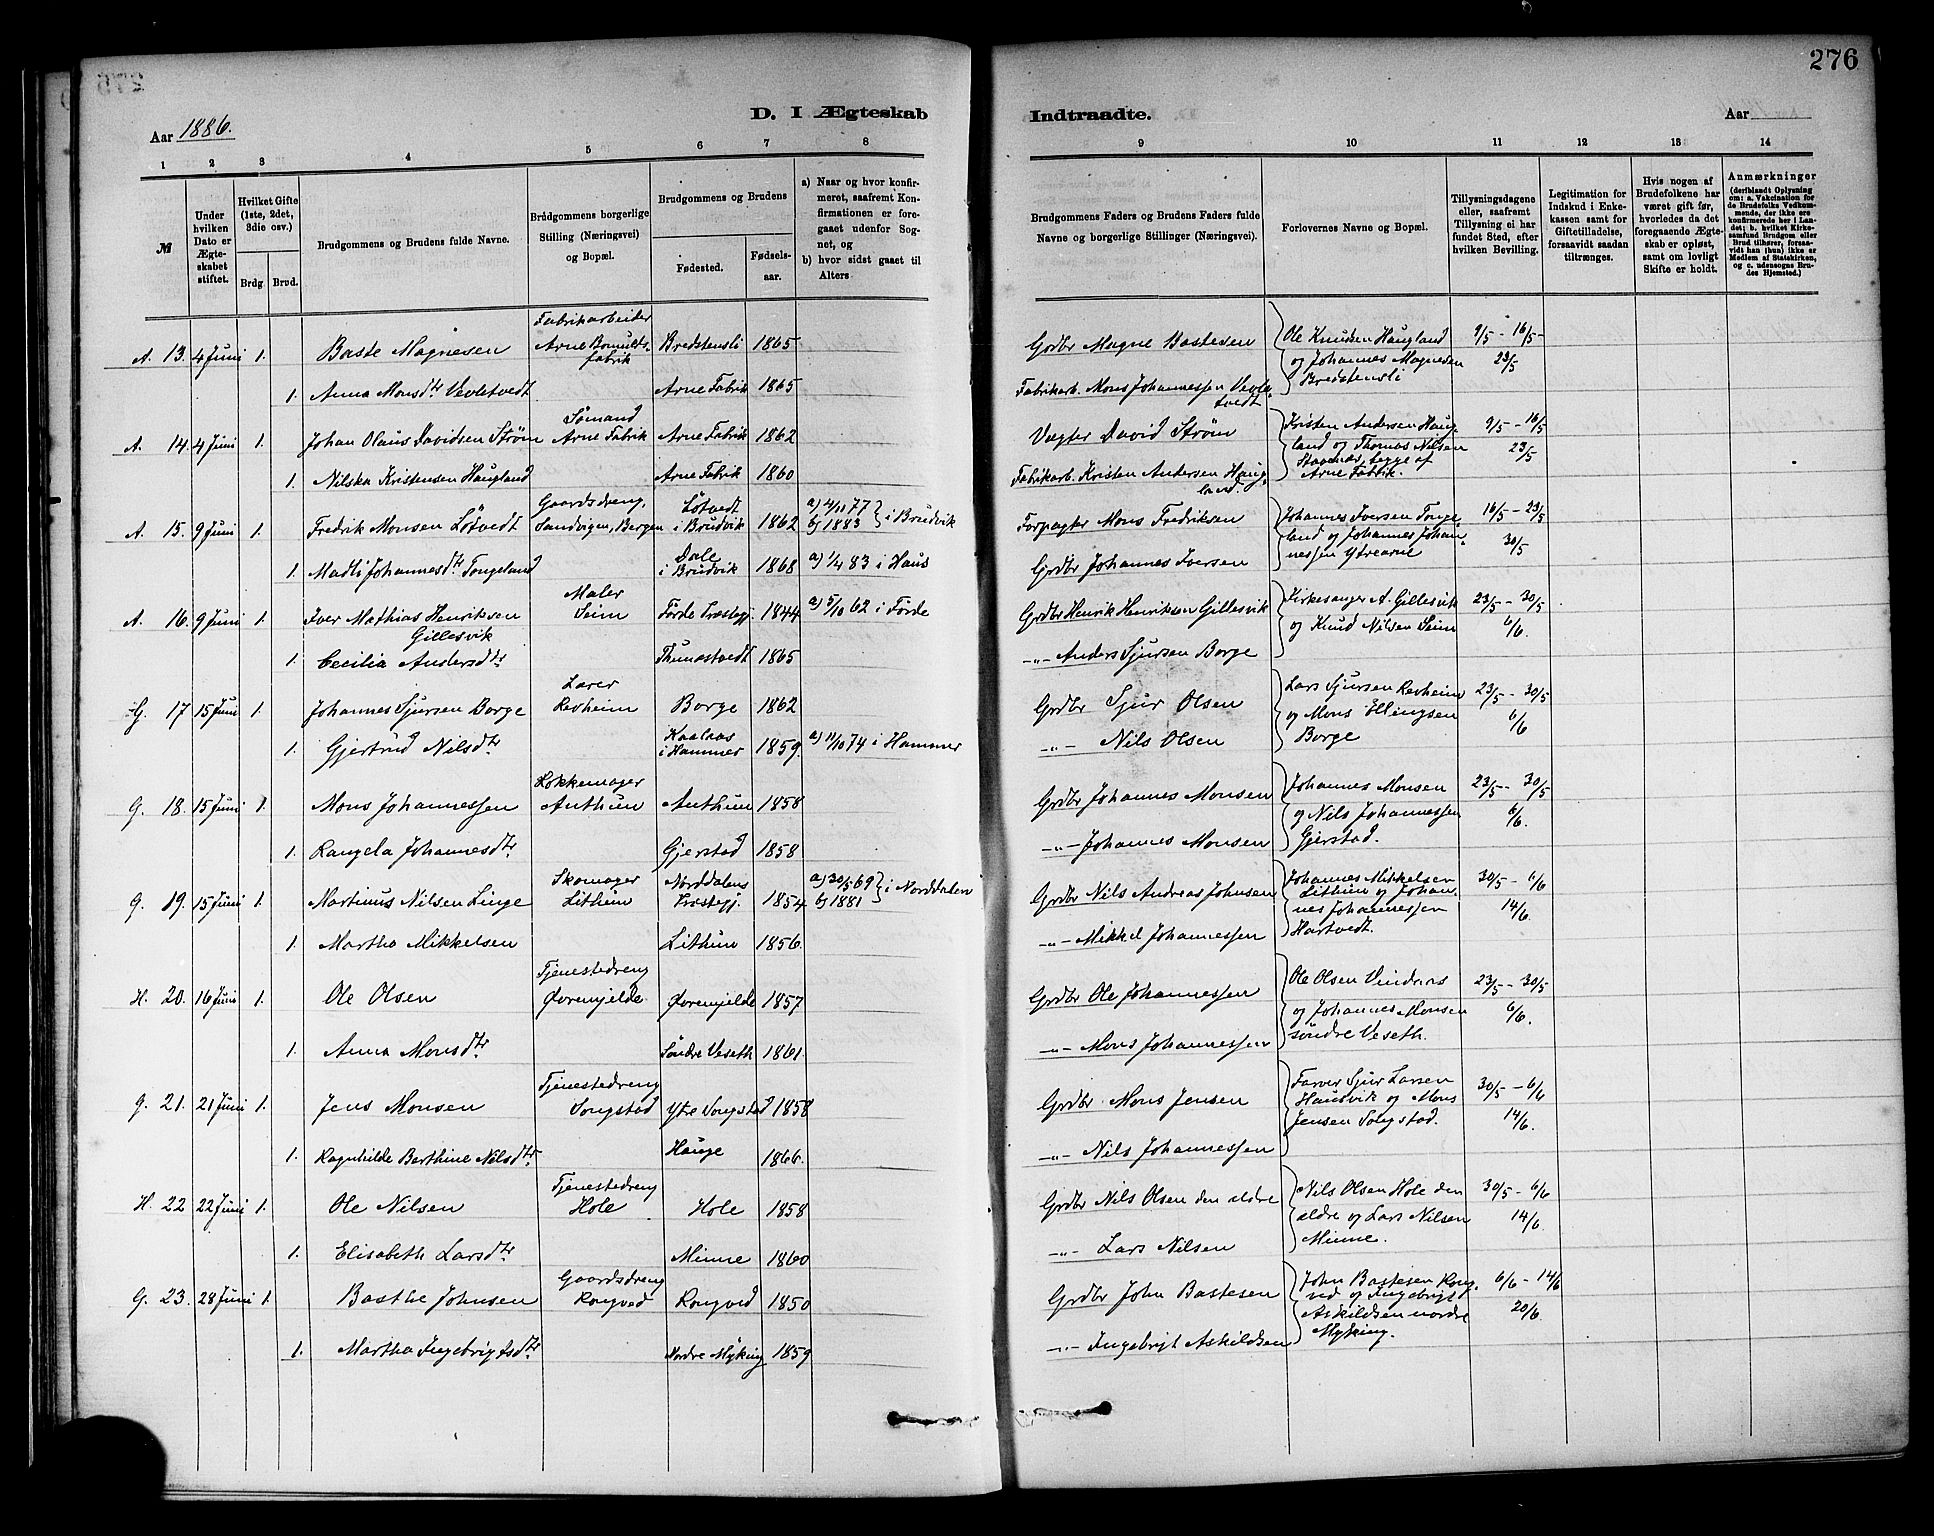 276
Aar 1886.
D. I Ægteskab
Indtraadte.
Aar
1 2 3 4 5 6 7 8
9 10 11 12 13 14
№
Under hvilken Dato er Ægteskabet stiftet.
Hvilket Gifte (1ste, 2det, 3die osv.)
Brdg. Brud.
Brudgommens og Brudens fulde Navne.
Brudgommens borgerlige Stilling (Næringsvei) og Bopæl.
Brudgommens og Brudens
Fødested.
Fødselsaar.
a) Naar og hvor konfirmeret, saafremt Konfirmationen er foregaaet udenfor Sognet, og
b) hvor sidst gaaet til Alters
Brudgommens Faders og Brudens Faders fulde Navne og borgerlige Stillinger (Næringsvei).
Forlovernes Navne og Bopæl.
Tillysningsdagene eller, saafremt Tillysning ei har fundet Sted, efter hvilken Bevilling.
Legitimation for Indskud i Enkekassen samt for Giftetilladelse, forsaavidt saadan tiltrænges.
Hvis nogen af Brudefolkene har været gift før, hvorledes da det foregaaende Ægteskab er opløst, samt om lovligt Skifte er holdt.
Anmærkninger (deriblandt Oplysning om: a. Vakcination for de Brudefolks Vedkommende, der ikke ere konfirmerede her i Landet; b. hvilket Kirkesamfund Brudgom eller Brud tilhører, forsaavidt han (hun) ikke er Medlem af Statskirken, og c. udensogns Brudes Hjemsted.)
A. 13. 4 Juni 1. Baste Magnesen Fabrikarbeider Arne Bomulds fabrik Bredstensli 1865 Grdbr Magne Bastesen Ole Knudsen Haugland og Johannes Magnesen Bredstensli 9/5 - 16/5 - 23/5
1. Anna Monsdtr Vevletvedt Arne Fabrik 1865 Fabrikarb. Mons Johannessen Vevletvedt
A. 14. 4 Juni 1. Johan Olaus Davidsen Strøm Sømand Arne Fabrik Arne Fabrik 1862 Vægter David Strøm Kristen Andersen Haugland og Thomas Nilsen begge af Arne Fabrik. 9/5 - 16/5 23/5
1. Nilska Kristensen Haugland Arne Fabrik 1860 Fabrikarb. Kristen Andersen Haugland.
A. 15. 9 Juni 1. Fredrik Monsen Løtvedt Gaardsdreng, Sandvigen, Bergen Løtvedt i Brudvik 1862 a) 4/11 77 b) 1883 } i Brudvik Forpagter Mons Fredriksen Johannes Iversen Tongeland og Johannes Johannessen Ytrearne 16/5 - 23/5 30/5
1. Madli Johannesdtr Tongeland Dale i Brudvik 1868 a) 1/4 83 i Haus Grdbr Johannes Iversen
A. 16. 9 Juni 1. Iver Mathias Henriksen Gillesvik Maler Seim Førde Præstegj. 1844 a) 5/10 62 i Førde Grdbr Henrik Henriksen Gillesvik Kirkesanger A. Gillesvik og Knud Nilsen Seim 23/5 - 30/5 6/6.
1. Cecilia Andersdtr Thunestvedt 1865 -"- Anders Sjursen Borge
G. 17 15 Juni 1. Johannes Sjursen Borge Lærer Revheim Borge 1862 Grdbr Sjur Olsen Lars Sjursen Revheim og Mons Ellingsen Borge 23/5 - 30/5 6/6
1. Gjertrud Nilsdtr Kaalaas i Hammer 1859. a) 11/10 74 i Hammer -"- Nils Olsen
G. 18. 15 Juni 1. Mons Johannessen Løkkemager Anthun Anthun 1858 Grdbr Johannes Monsen Johannes Monsen og Nils Johannessen Gjerstad. 23/5 - 30/5 6/6.
1. Rangela Johannesdtr Gjerstad 1858 -"- Johannes Monsen
G. 19. 15 Juni 1. Martinus Nilsen Linge Skomager Lithun Norddalens Præstegj. 1854 a) 30/5 69 b) 1881 } i Norddalen Grdbr Nils Andreas Johnsen Johannes Mikkelsen Lithun og Johannes Johannessen Hartvedt. 30/5 - 6/6 14/6.
1. Martha Mikkelsen Lithun 1856. -"- Mikkel Johannessen
H. 20. 16 Juni 1. Ole Olsen Tjenestedreng Øvremjelde. Øvremjelde 1857 Grdbr Ole Johannessen Ole Olsen Vindenes og Johannes Monsen søndre Veseth. 23/5 - 30/5 6/6.
1. Anna Monsdtr Søndre Veseth 1861. -"- Mons Johannessen
G. 21. 21 Juni 1. Jens Monsen Tjenestedreng Songstad Ytre Songstad 1858 Grdbr Mons Jensen Farver Sjur Larsen Hausvik og Mons Jensen Songstad. 30/5 - 6/6 14/6.
1. Ragnhilde Berthine Nilsdtr. Hauge 1866. -"- Nils Johannessen
H. 22 22 Juni 1. Ole Nilsen Tjenestedreng Hole Hole 1858 Grdbr Nils Olsen den ældre Nils Olsen Hole den ældre og Lars Nilsen Minne. 30/5 - 6/6 14/6.
1. Elisabeth Larsdtr Minne 1860 -"- Lars Nilsen
G. 23. 28 Juni 1. Basthe Johnsen Gaardsdreng Rongved Rongved 1850 Grdbr John Bastesen John Bastesen Rongved og Ingebrigt Askildsen nordre Myking. 6/6 - 14/6 20/6.
1. Martha Ingebrigtsdtr Nordre Myking 1859 -"- Ingebrigt Askildsen